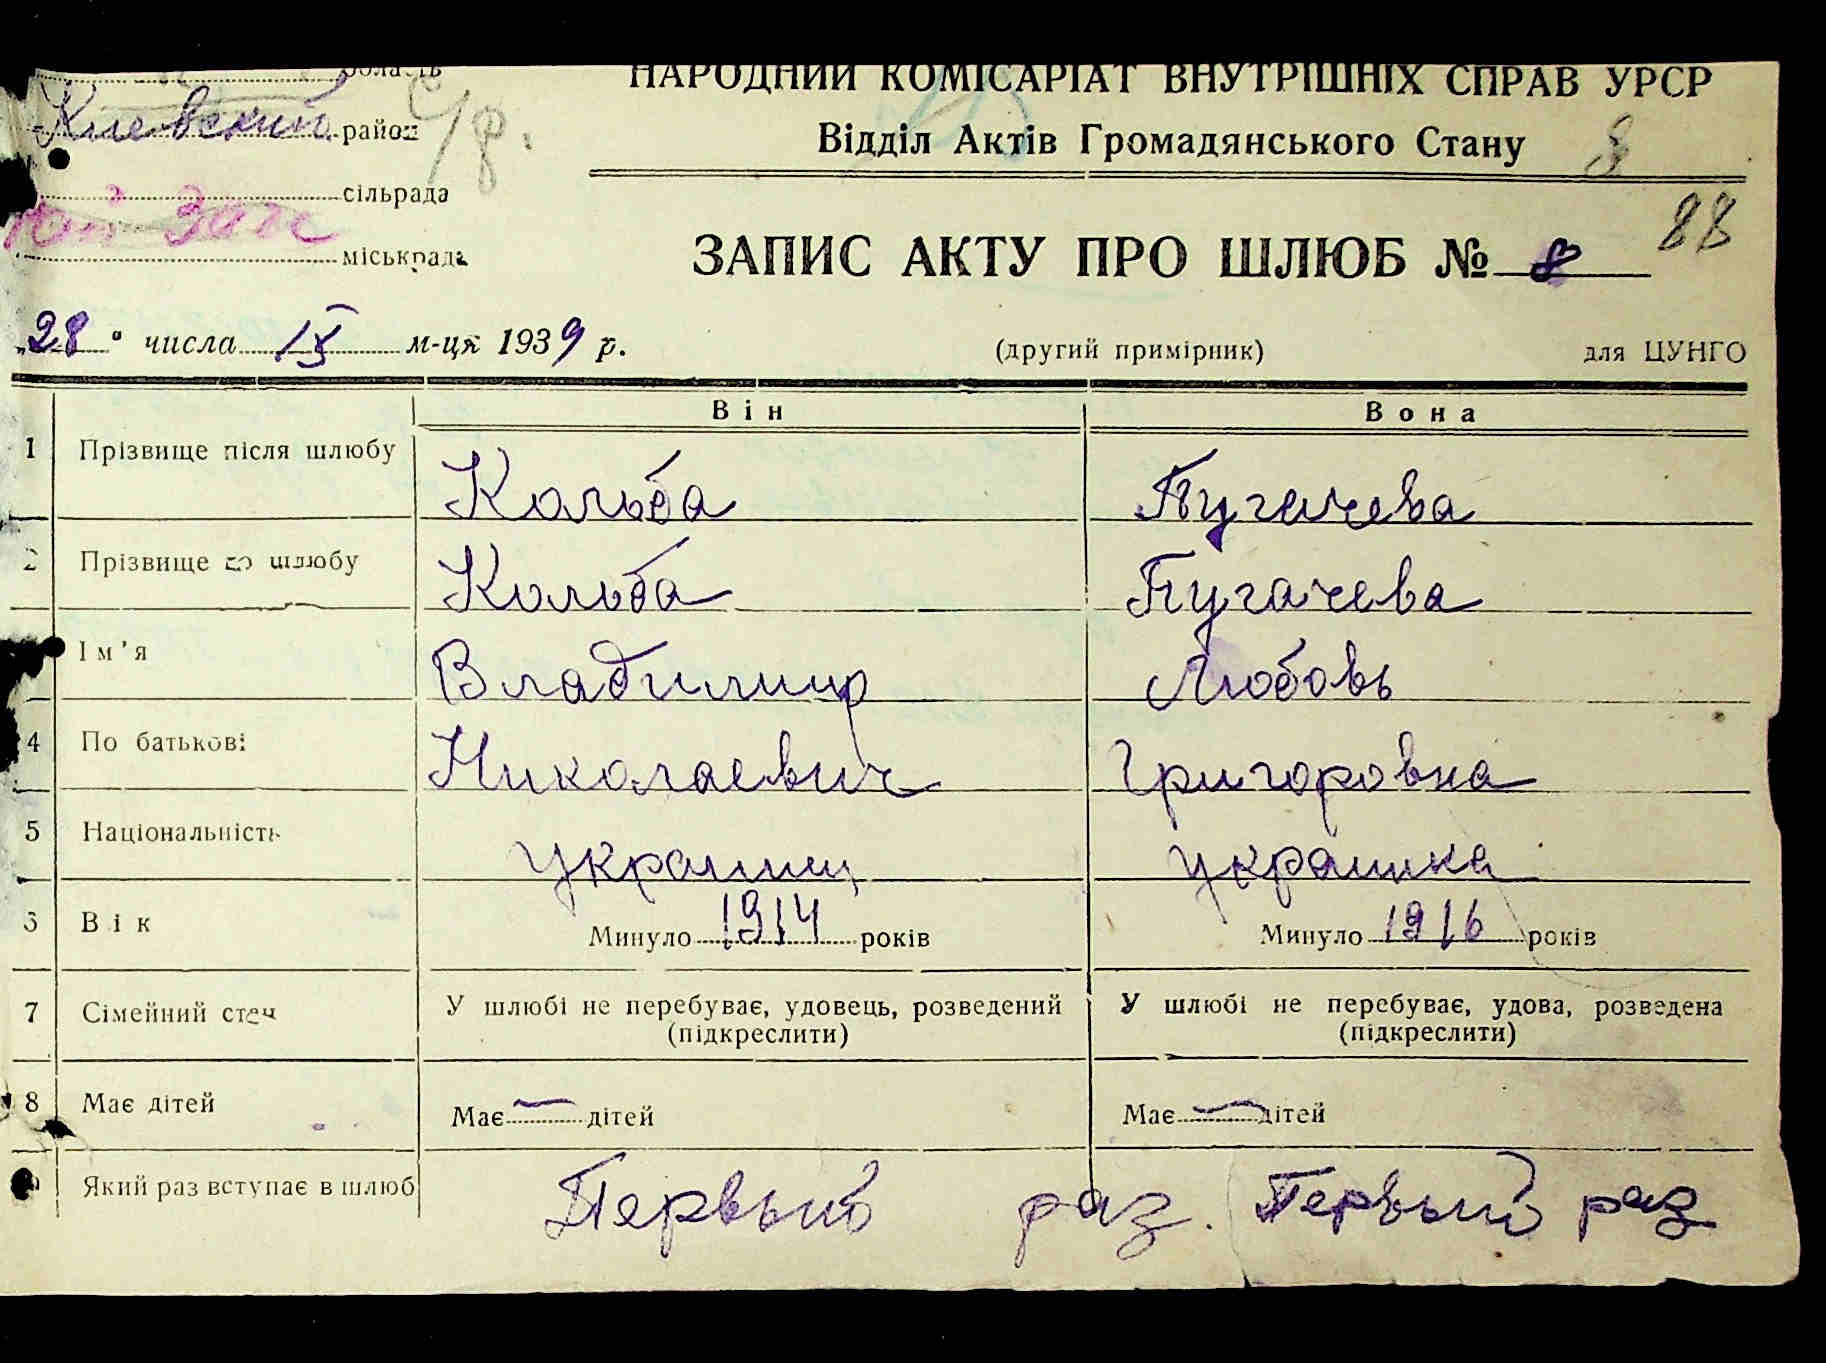 область
НАРОДНИЙ КОМІСАРІАТ ВНУТРІШНІХ СПРАВ УРСР
Киевский район
Відділ Актів Громадянського Стану 8
сільрада
загс
міськрада
88
ЗАПИС АКТУ ПРО ШЛЮБ № 8
„28“ числа IX м-ця 1939 р.
(другий примірник)
для ЦУНГО
Він Вона
1 Прізвище після шлюбу Кольба Пугачева
2 Прізвище до шлюбу Кольба Пугачева
Ім'я Владимир Любовь
4 По батькові Николаевич Григоровна
5 Національність украинец украинка
6 Вік Минуло 1914 років Минуло 1916 років
7 Сімейний стан У шлюбі не перебуває, удовець, розведений У шлюбі не перебуває, удова, розведена
(підкреслити) (підкреслити)
8 Має дітей Має — дітей Має — дітей
Який раз вступає в шлюб Первый раз. Первый раз